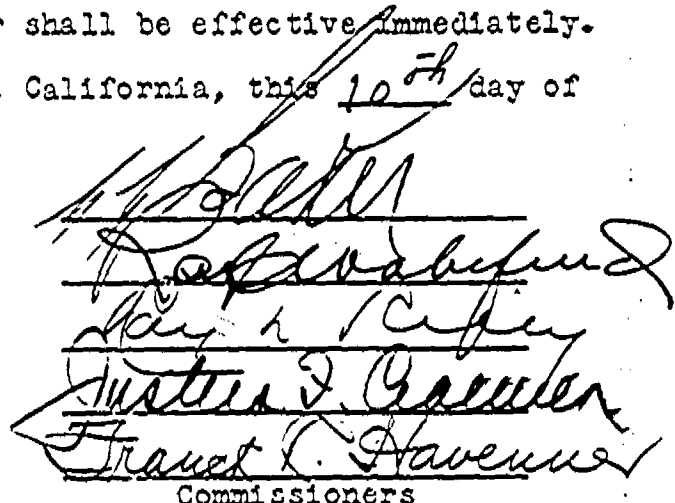 r shall be effective immediately.
California, this 10th day of
Baker
Ray L. Riley
Justus F. Craemer
Franck R. Havenner
Commissioners